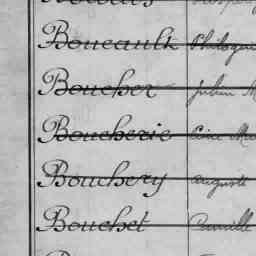 Boucault Philogène
Boucher Julien M
Boucherie
Bouchery Auguste
Bouchet Camille